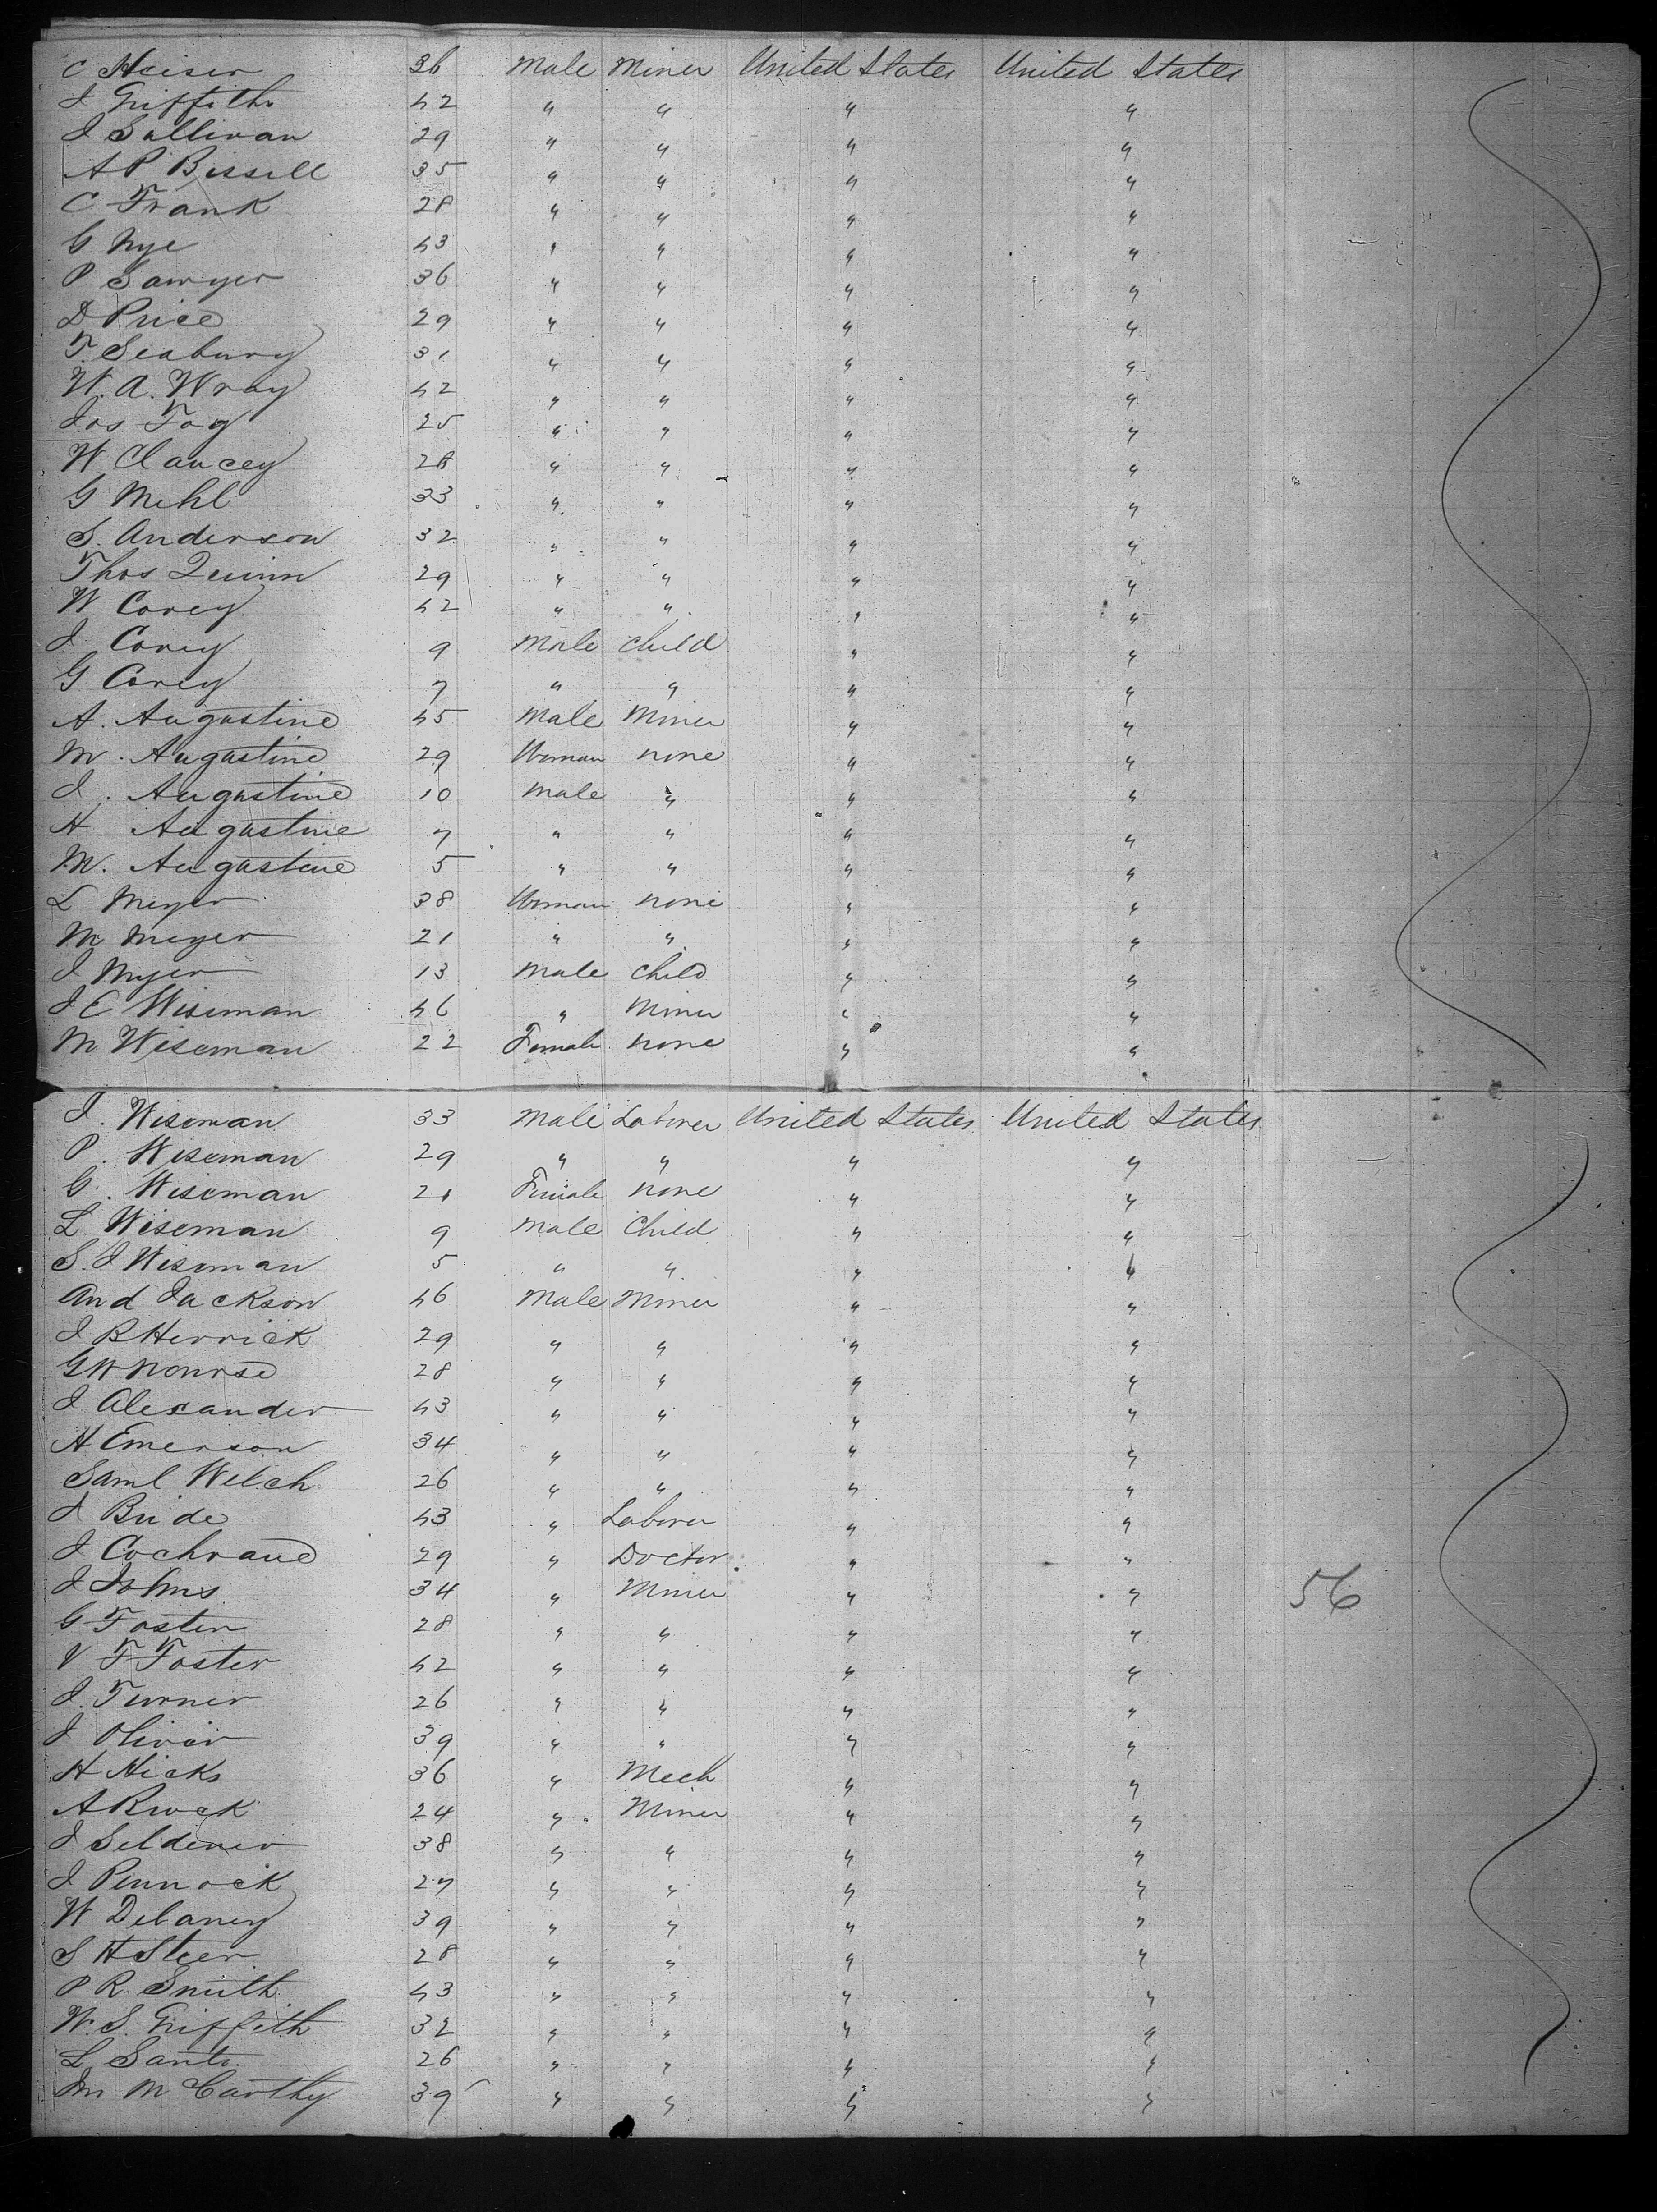 C Heiser 36 Male Miner United States United States
J Griffith 42 " " " "
J Sullivan 29 " " " "
A P Bissell 35 " " " "
C Frank 28 " " " "
G Nye 43 " " " "
P Sawyer 36 " " " "
D Price 29 " " " "
T. Seabury 31 " " " "
W. A. Wray 42 " " " "
Jos Fog 25 " " " "
W Clancey 28 " " " "
G Mehl 33 " " " "
S. Anderson 32 " " " "
Thos Quinn 29 " " " "
W Corey 42 " " " "
J Corey 9 Male Child " "
G Corey 7 " " " "
A. Augustine 45 Male Miner " "
M. Augustine 29 Woman none " "
J. Augustine 10 Male " " "
H Augustine 7 " " " "
M. Augustine 5 " " " "
L Meyer 38 Woman none " "
M Meyer 21 " " " "
J Myer 13 Male Child " "
J E Wiseman 46 " Miner " "
M Wiseman 22 Female none " "
J. Wiseman 33 Male Laborer United States United States
P. Wiseman 29 " " " "
G. Wiseman 21 Female none " "
L Wiseman 9 Male Child " "
S. J Wiseman 5 " " " "
And Jackson 46 Male Miner " "
J B Herrick 29 " " " "
G W Nourse 28 " " " "
J Alexander 43 " " " "
H Emerson 34 " " " "
Saml Welch 26 " " " "
J Bride 43 " Laborer " "
J Cochrane 29 " Doctor " "
J Johns 34 " Miner " " 56
G Foster 28 " " " "
V F Foster 42 " " " "
J. Turner 26 " " " "
J Oliver 39 " " " "
H Hicks 36 " Mech " "
A 24 " Miner " "
J Seldener 38 " " " "
J Pennock 27 " " " "
W Delaney 39 " " " "
S H Steer 28 " " " "
P R Smith 43 " " " "
W. S. Griffith 32 " " " "
L Sants 26 " " " "
M Carthy 39 " " " "